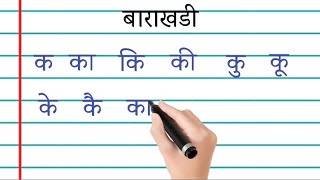 बाराखडी
क का कि की कु कू
के कै का